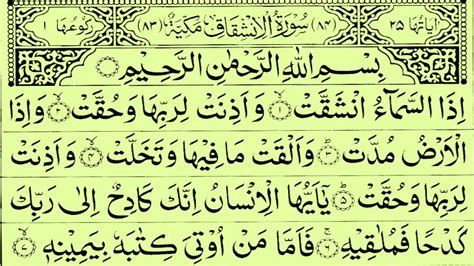 اٰیَاتُهَا ٢٥ (٨٤) سُوْرَةُ الْاِنْشِقَاقِ مَكِّیَّةٌ (٨٣) رُكُوْعُهَا ١
بِسْمِ اللّٰهِ الرَّحْمٰنِ الرَّحِیْمِ
اِذَا السَّمَآءُ انْشَقَّتْ ۙ﴿١﴾ وَ اَذِنَتْ لِرَبِّهَا وَ حُقَّتْ ۙ﴿٢﴾ وَ اِذَا
الْاَرْضُ مُدَّتْ ۙ﴿٣﴾ وَ اَلْقَتْ مَا فِیْهَا وَ تَخَلَّتْ ۙ﴿٤﴾ وَ اَذِنَتْ
لِرَبِّهَا وَ حُقَّتْ ؕ﴿٥﴾ یٰۤاَیُّهَا الْاِنْسَانُ اِنَّكَ كَادِحٌ اِلٰى رَبِّكَ
كَدْحًا فَمُلٰقِیْهِ ۚ﴿٦﴾ فَاَمَّا مَنْ اُوْتِیَ كِتٰبَهٗ بِیَمِیْنِهٖ ۙ﴿٧﴾